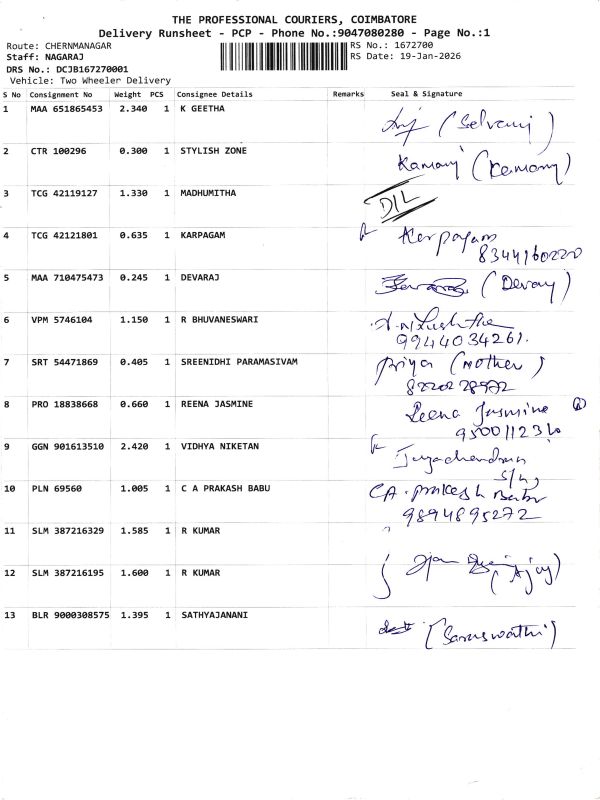 THE PROFESSIONAL COURIERS, COIMBATORE
Delivery Runsheet - PCP - Phone No.:9047080280 - Page No.:1
Route: CHERMANAGAR
RS No.: 1672700
Staff: NAGARAJ
RS Date: 19-Jan-2026
DRS No.: DCJB167270001
Vehicle: Two Wheeler Delivery
S No Consignment No Weight PCS Consignee Details Remarks Seal & Signature
1 MAA 651865453 2.340 1 K GEETHA (Selvam)
2 CTR 100296 0.300 1 STYLISH ZONE Kamani (Kamany)
3 TCG 42119127 1.330 1 MADHUMITHA DIL
4 TCG 42121801 0.635 1 KARPAGAM Karpagam
8344160220
5 MAA 710475473 0.245 1 DEVARAJ (Devaraj)
6 VPM 5746104 1.150 1 R BHUVANESWARI
9944034261.
7 SRT 54471869 0.405 1 SREENIDHI PARAMASIVAM Priya (Mother)
8220228972
8 PRO 18838668 0.660 1 REENA JASMINE Reena Jasmine
9500112310
9 GGN 901613510 2.420 1 VIDHYA NIKETAN
10 PLN 69560 1.005 1 C A PRAKASH BABU CA. Prakash Babu
9894895272
11 SLM 387216329 1.585 1 R KUMAR
12 SLM 387216195 1.600 1 R KUMAR (Ajay)
13 BLR 9000308575 1.395 1 SATHYAJANANI (Saraswathi)